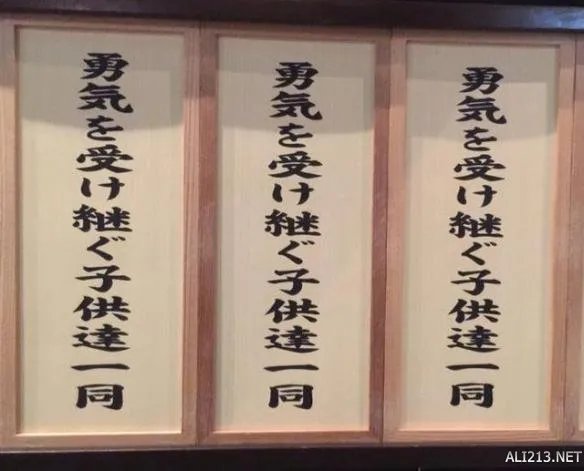 勇気を受け継ぐ子供達一同
勇気を受け継ぐ子供達一同
勇気を受け継ぐ子供達一同
ALI213.NET